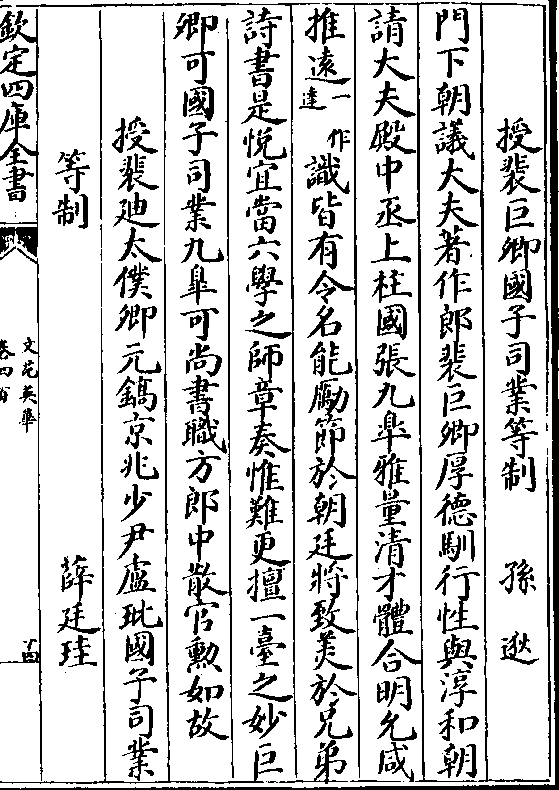 授裴巨卿國子司業等制　孫逖
門下朝議大夫著作郎裴巨卿厚德馴行性與淳和朝
請大夫殿中丞上柱國張九皐雅量清才體合明允咸
推遠一作達識皆有令名能勵節於朝廷將致美於兄弟
詩書是悦宜當六學之師章奏惟難更擅一臺之妙巨
卿可國子司業九臯可尚書職方郎中散官勲如故
授裴廸太僕卿元鐈京兆少尹盧玭國子司業
等制　薛廷珪
欽定四庫全書
文苑英華
卷四百
十四